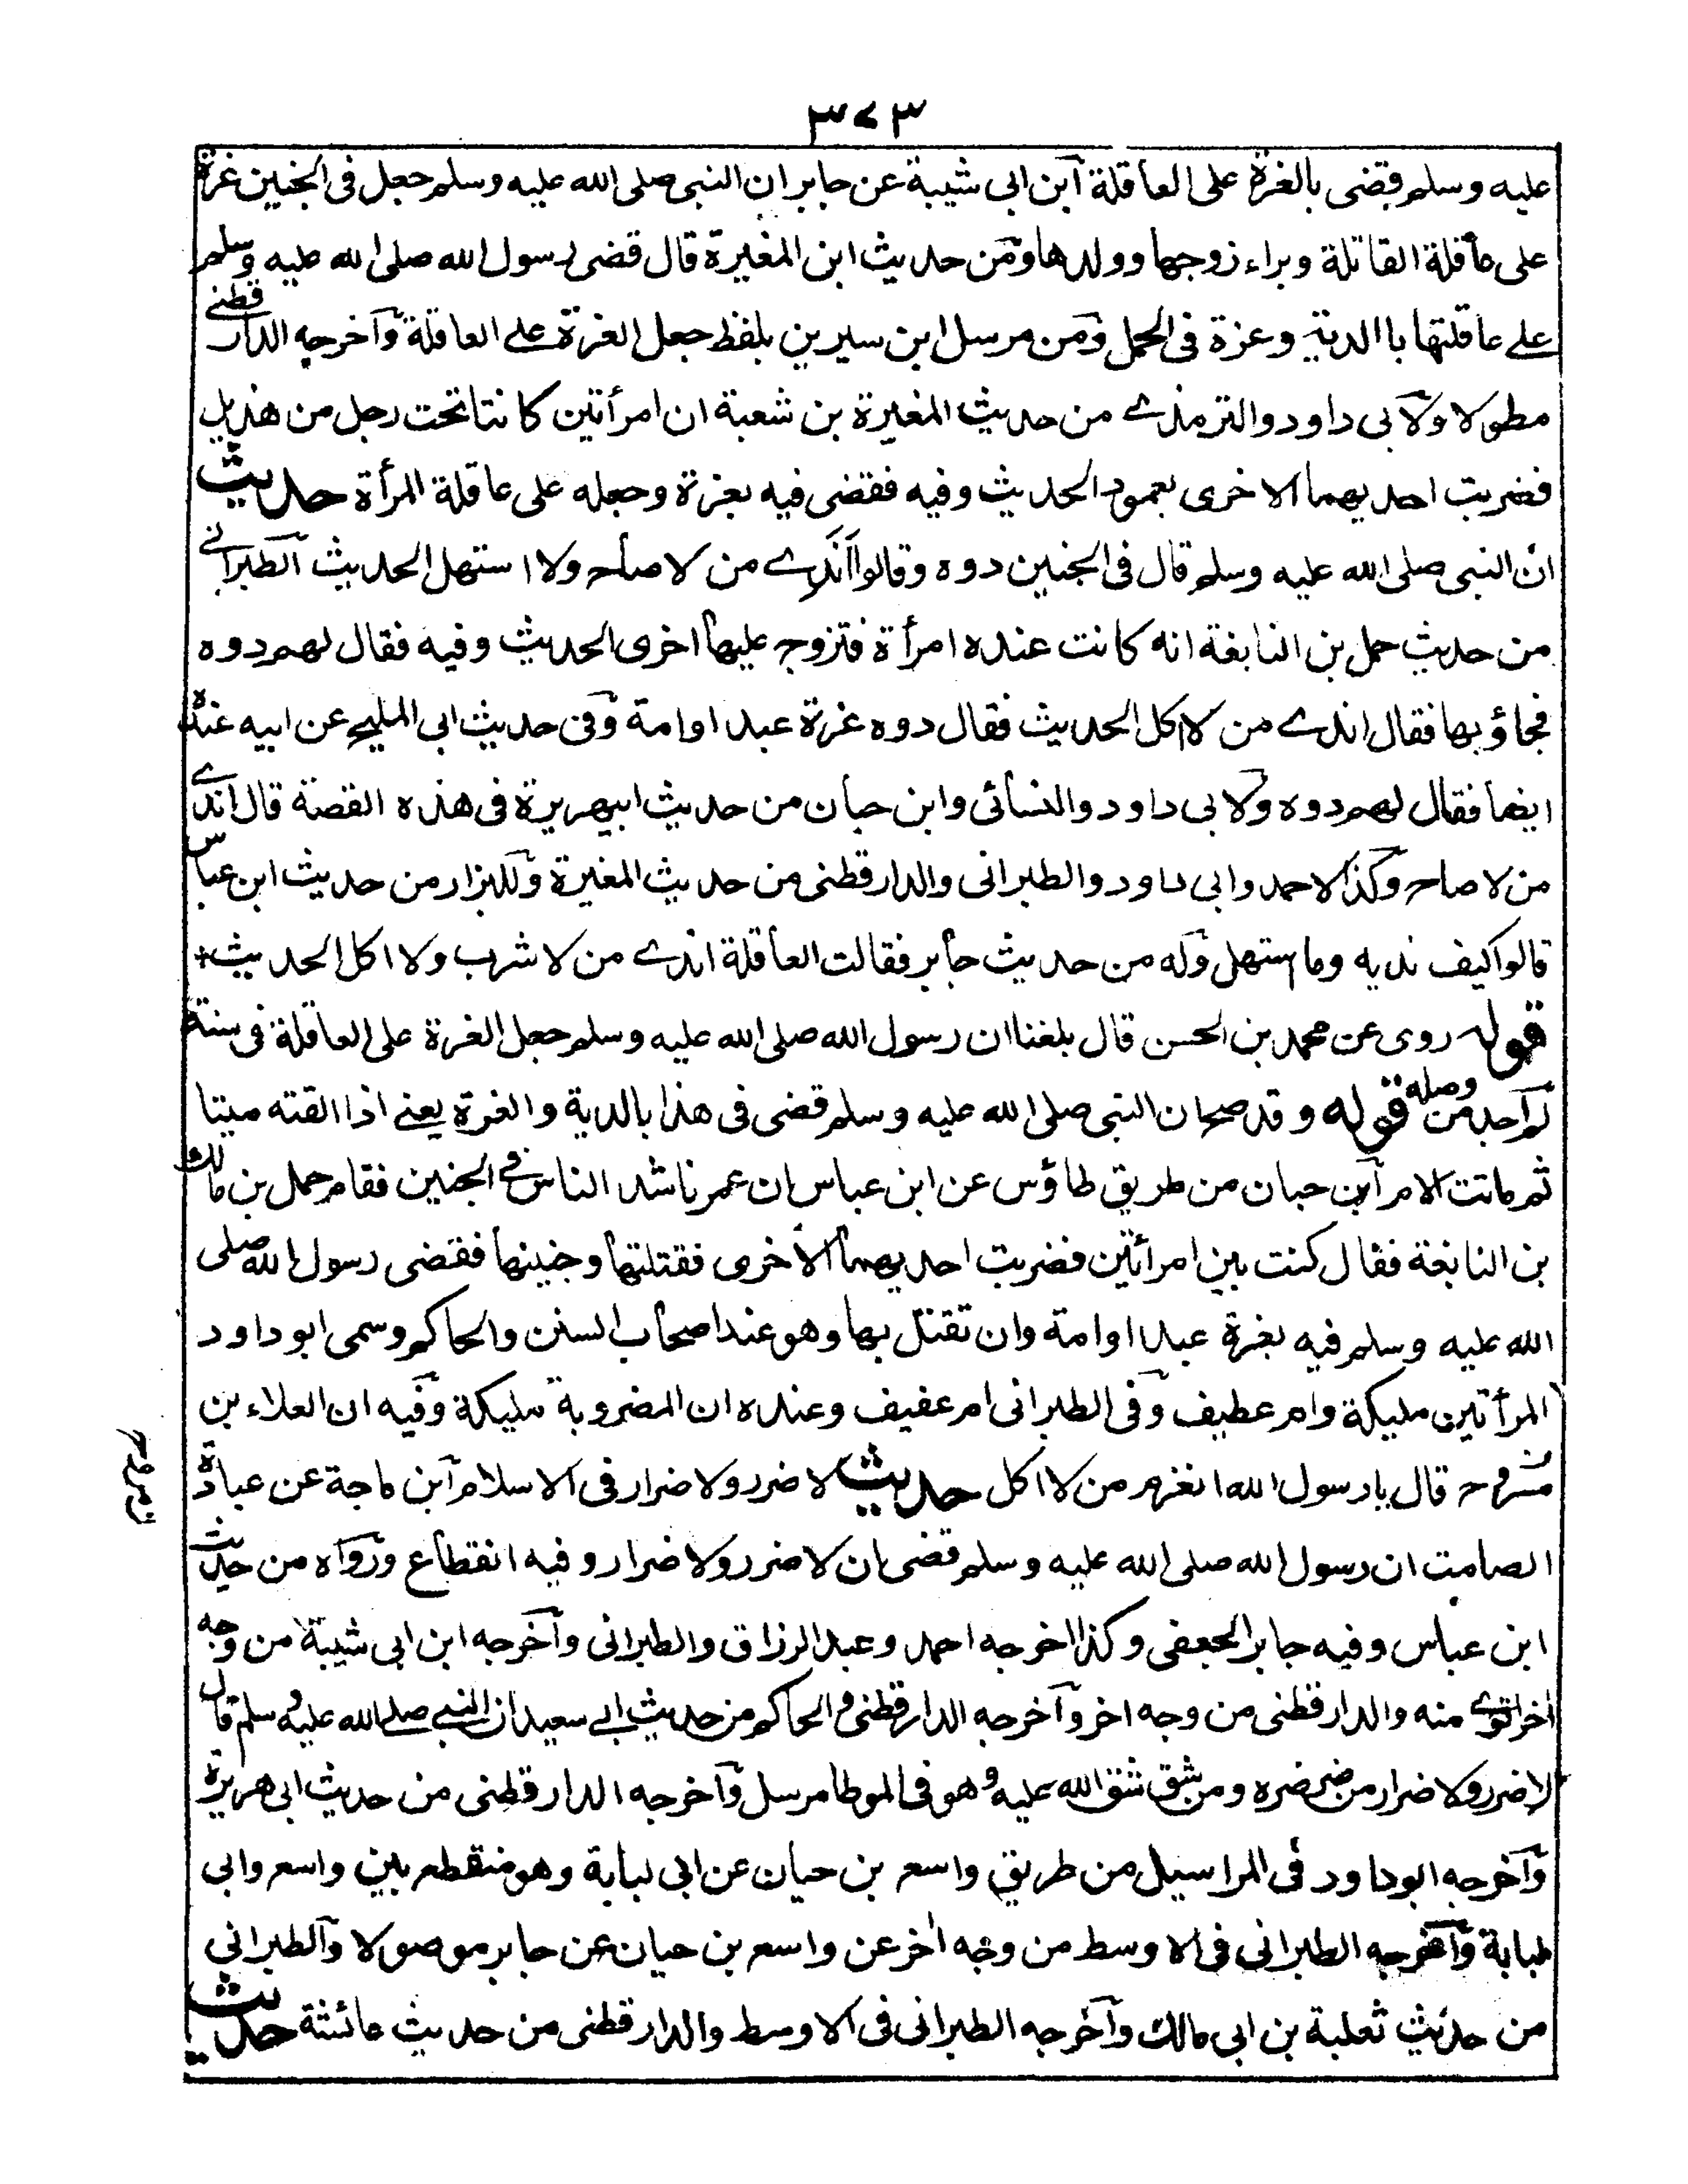 ٣٧٣
عليه وسلم قضى بالغرة على العاقلة ابن ابى شيبة عن جابر ان النبى صلى الله عليه وسلم جعل فى الجنين غرة
على عاقلة القاتلة وبراء زوجها وولدها ومن حديث ابن المغيرة قال قضى رسول الله صلى الله عليه وسلم
على عاقلتها باالدية وعزة فى الحمل ومن مرسل ابن سيرين بلفظ جعل الغرة على العاقلة وآخرجه الدارقطنے
مطولا ولابى داود والترمذے من حديث المغيرة بن شعبة ان امرأتين كانتا تحت رجل من هذيل
فضربت احديهما الاخرى بعمود الحديث وفيه فقضى فيه بغرة وجعله على عاقلة المرأة حديث
ان النبى صلى الله عليه وسلم قال فى الجنين دوه وقالوا اندے من لا صاح ولا استهل الحديث الطبرانے
من حديث حمل بن النابغة انه كانت عنده امرأة فتزوج عليها اخرى الحديث وفيه فقال لهم دوه
فجاؤ بها فقال اندے من لا اكل الحديث فقال دوه غرة عبد او امة وفى حديث ابى المليح عن ابيه عنده
ايضا فقال لهم دوه ولابى داود والنسائى وابن حبان من حديث ابيهريرة فى هذه القصة قال اندے
من لا صاح وكذا لاحمد وابى داود والطبرانى والدارقطنى من حديث المغيرة وللبزار من حديث ابن عباس
قالوا كيف نديه وما استهل وله من حديث جابر فقالت العاقلة اندے من لا شرب ولا اكل الحديث+
قوله روى عن محمد بن الحسن قال بلغنا ان رسول الله صلى الله عليه وسلم جعل الغرة على العاقلة فى سنة
لم آجد من وصله قوله وقد صح ان النبى صلى الله عليه وسلم قضى فى هذا بالدية والغرة يعنے اذا القته ميتا
ثم ماتت الام آبن حبان من طريق طاؤس عن ابن عباس ان عمر ناشد الناس فے الجنين فقام حمل بن مالك
بن النابغة فقال كنت بين امرأتين فضربت احديهما الأخرى فقتلتها وجنينها فقضى رسول الله صلى
الله عليه وسلم فيه بغرة عبد او امة وان تقتل بها وهو عند اصحاب السنن والحاكم وسمى ابو داود
المرأتين مليكة وام عطيف وفى الطبرانى ام عفيف وعنده ان المضروبة مليكة وفيه ان العلاء بن
مسروح قال يا رسول الله انغرم من لا اكل حديث لا ضرر ولا ضرار فى الاسلام آبن ماجة عن عبادة
الصامت ان رسول الله صلى الله عليه وسلم قضى ان لا ضرر ولا ضرار وفيه انقطاع ورواه من حديث
ابن عباس وفيه جابر الجعفى وكذا اخرجه احمد وعبد الرزاق والطبرانى وآخرجه ابن ابى شيبة من وجه
اخر اقوے منه والدارقطنى من وجه اخر وآخرجه الدارقطنى والحاكم من حديث ابے سعيد ان النبے صلے الله عليه وسلم قال
لا ضرر ولا ضرار من ضر ضره ومن شق شق الله عليه وهو فى الموطا مرسل وآخرجه الدارقطنى من حديث ابى هريرة
وآخرجه ابوداود فى المراسيل من طريق واسع بن حبان عن ابى لبابة وهو منقطع بين واسع وابى
لبابة وآخرجه الطبرانى فى الاوسط من وجه اخر عن واسع بن حبان عن جابر موصولا وآلطبرانى
من حديث ثعلبة بن ابى مالك وآخرجه الطبرانى فى الاوسط والدارقطنى من حديث عائشة حديث